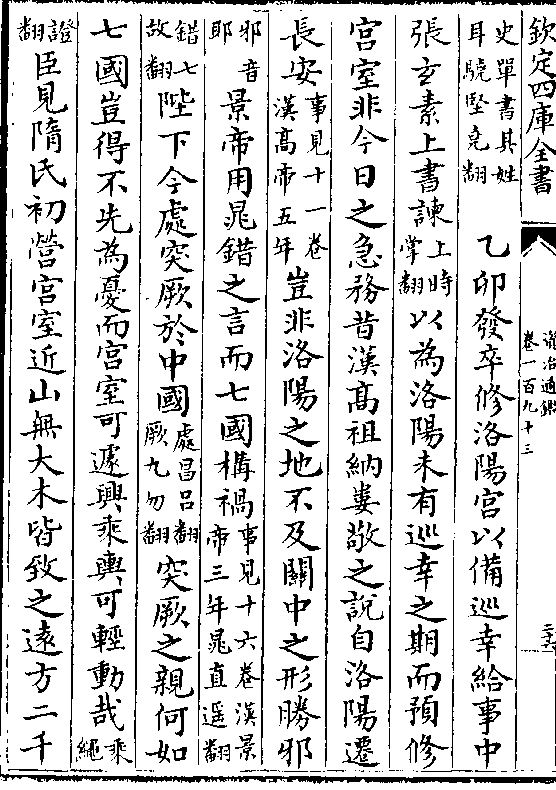 欽定四庫全書
資治通鑑
卷一百九十三
史單書其姓
耳驍堅堯翻
乙卯發卒修洛陽宮以備巡幸給事中
張玄素上書諫上時掌翻以為洛陽未有巡幸之期而預修
宮室非今日之急務昔漢髙祖納婁敬之說自洛陽遷
長安事見十一卷漢髙帝五年豈非洛陽之地不及關中之形勝邪
邪音耶景帝用鼂錯之言而七國構禍事見十六卷漢景帝三年鼂直遥翻
錯七故翻陛下今處突厥於中國處昌呂翻厥九勿翻突厥之親何如
七國豈得不先為憂而宮室可遽興乘輿可輕動哉乘繩
證翻臣見隋氏初營宮室近山無大木皆致之遠方二千